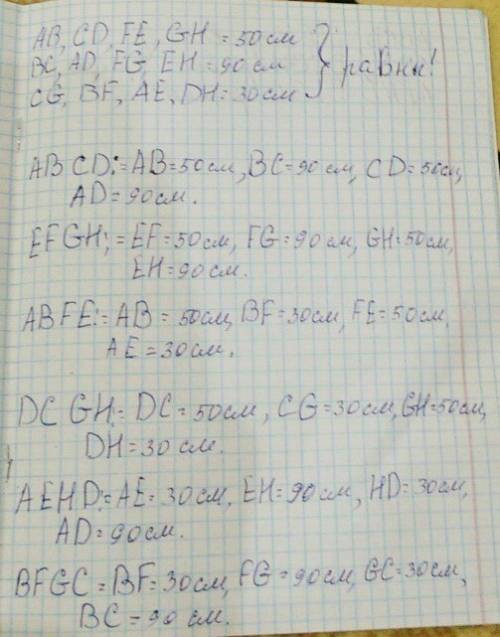 AB, CD, FE, GH = 50 см
BC, AD, FG, EH = 90 см } равны!
CG, BF, AE, DH = 30 см
ABCD: = AB = 50 см, BC = 90 см, CD = 50 см,
AD = 90 см.
EFGH: = EF = 50 см, FG = 90 см, GH = 50 см,
EH = 90 см.
ABFE: = AB = 50 см, BF = 30 см, FE = 50 см,
AE = 30 см.
DCGH: = DC = 50 см, CG = 30 см, GH = 50 см,
DH = 30 см.
AEHD: = AE = 30 см, EH = 90 см, HD = 30 см,
AD = 90 см.
BFGC = BF = 30 см, FG = 90 см, GC = 30 см,
BC = 90 см.